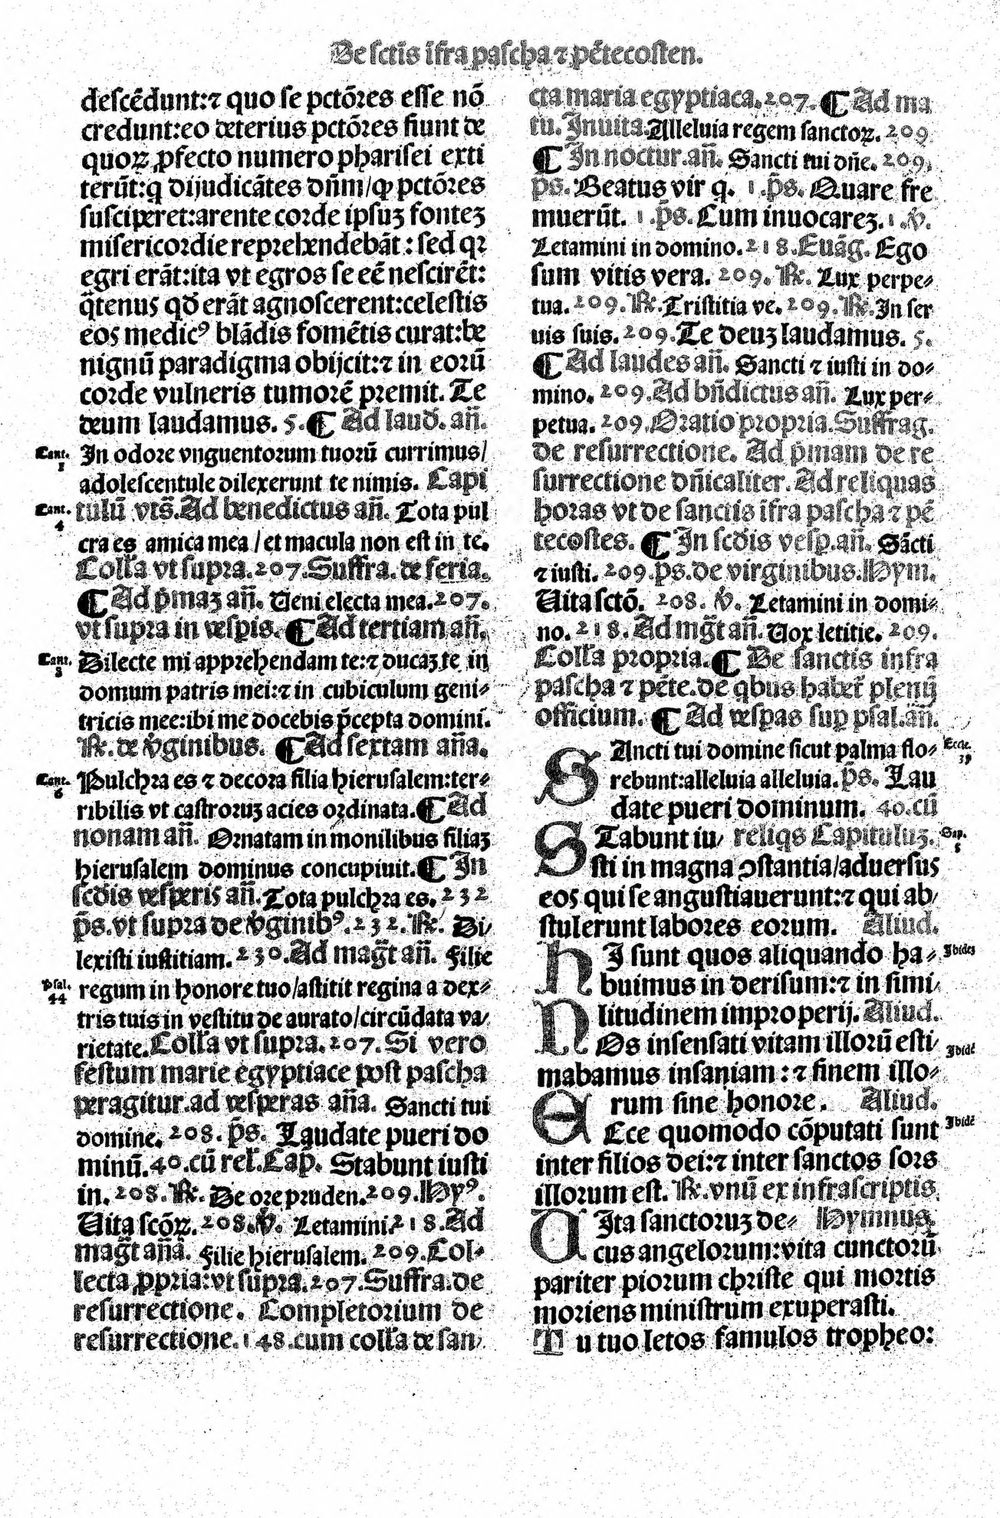 De sctis ifra pascha ⁊ pētecosten.
descēdunt:⁊ quo se pctōres esse nō
credunt:eo deterius pctōres fiunt de
quoꝝ ꝓfecto numero pharisei exti
terūt:q̄ dijudicātes dn̄m/ꝙ pctōres
susciperet:arente corde ipsuꝫ fonteꝫ
misericordie reprehendebāt: sed qꝛ
egri erāt:ita vt egros se eē nescirēt:
q̄tenus qd̄ erāt agnoscerent:celestis
eos medicꝰ blādis fomētis curat:be
nignū paradigma obijcit:⁊ in eorū
corde vulneris tumorē premit. Te
deum laudamus. 5. ¶ Ad laud. an̄.
Cant. 1 In odore vnguentorum tuorū currimus/
adolescentule dilexerunt te nimis. Capi
Cant. 4 tulū vts̄. Ad benedictus an̄. Tota pul
cra es amica mea/et macula non est in te.
Coll'a vt supra. 207. Suffra. de feria.
¶ Ad p̄maꝫ an̄. Ueni electa mea. 207.
vt supra in vesp̄is. ¶ Ad tertiam an̄.
Cant. 3 Dilecte mi apprehendam te:⁊ ducaꝫ te in
domum patris mei:⁊ in cubiculum geni-
tricis mee:ibi me docebis p̄cepta domini.
℞. de v̄ginibus. ¶ Ad sextam an̄a.
Cant. 6 Pulchra es ⁊ decora filia hierusalem:ter-
ribilis vt castroruꝫ acies ordinata. ¶ Ad
nonam an̄. Ornatam in monilibus filiaꝫ
hierusalem dominus concupiuit. ¶ In
scd̄is vesperis an̄. Tota pulchra es. 232
p̄s. vt supra de v̄ginibꝰ. 232. ℞. Di/
lexisti iustitiam. 230. Ad maḡt an̄. Filie
Psal. 44 regum in honore tuo/astitit regina a dex-
tris tuis in vestitu de aurato/circūdata va/
rietate. Coll'a vt supra. 207. Si vero
festum marie egyptiace post pascha
peragitur. ad vesperas an̄a. Sancti tui
domine. 208. p̄s. Laudate pueri do
minū. 40. cū rel'. Cap̄. Stabunt iusti
in. 208. ℞. De ore pruden. 209. Hyꝰ.
Uita scōꝝ. 208. ℣. Letamini. 218. Ad
maḡt an̄a. Filie hierusalem. 209. Col-
lecta ꝓpria:vt supra. 207. Suffra. de
resurrectione. Completorium de
resurrectione. 148. cum coll'a de san/
cta maria egyptiaca. 207. ¶ Ad ma
tu. Inuita. Alleluia regem sanctoꝝ. 209
¶ In noctur. an̄. Sancti tui dn̄e. 209.
p̄s. Beatus vir q. 1. p̄s. Quare fre
muerūt. 1. p̄s. Cum inuocareꝫ. 1. ℣.
Letamini in domino. 218. Euāg. Ego
sum vitis vera. 209. ℞. Lux perpe-
tua. 209. ℞. Tristitia ve. 209. ℞. In ser
uis suis. 209. Te deuꝫ laudamus. 5.
¶ Ad laudes an̄. Sancti ⁊ iusti in do-
mino. 209. Ad bn̄dictus an̄. Lux per-
petua. 209. Oratio propria. Suffrag.
de resurrectione. Ad p̄mam de re
surrectione dn̄icaliter. Ad reliquas
horas vt de sanctis ifra pascha ⁊ pē
tecostes. ¶ In scd̄is vesp̄. an̄. Sācti
⁊ iusti. 209. p̄s. de virginibus. Hym.
Uita sctō. 208. ℣. Letamini in domi-
no. 218. Ad mḡt an̄. Uox letitie. 209.
Coll'a propria. ¶ De sanctis infra
pascha ⁊ pēte. de qbus haber̄ plenū
officium. ¶ Ad vesp̄as sup̄ psal. an̄.
SAncti tui domine sicut palma flo- Eccle. 39
rebunt:alleluia alleluia. p̄s. Lau
date pueri dominum. 40. cū
STabunt iu/ reliqs Capituluꝫ. Sap. 5
sti in magna ↄstantia/aduersus
eos qui se angustiauerunt:⁊ qui ab/
stulerunt labores eorum. Aliud.
HI sunt quos aliquando ha- Ibidē
buimus in derisum:⁊ in simi/
litudinem improperij. Aliud.
NOs insensati vitam illorū esti/ Ibidē
mabamus insaniam:⁊ finem illo-
rum sine honore. Aliud.
ECce quomodo cōputati sunt Ibidē
inter filios dei:⁊ inter sanctos sors
illorum est. ℞. vnū ex infrascriptis.
UIta sanctoruꝫ de- Hymnus.
cus angelorum:vita cunctorū
pariter piorum christe qui mortis
moriens ministrum exuperasti.
Tu tuo letos famulos tropheo: